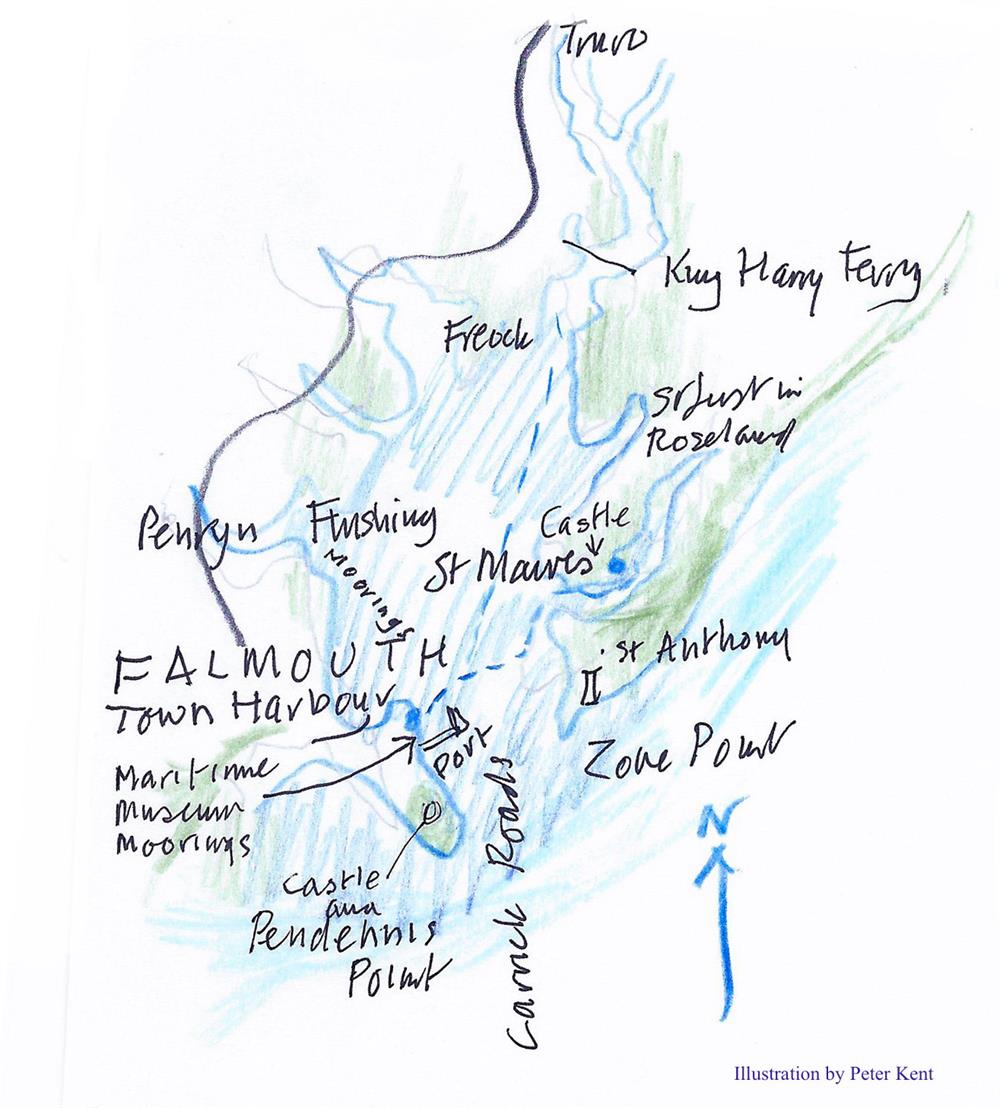 Truro
King Harry Ferry
Freock
St Just in
Roseland
Penryn
Flushing
Moorings
Castle
St Mawes
FALMOUTH
Town Harbour
St Anthony
Maritime
Museum
Moorings
Port
Zone Point
N
Castle
and
Pendennis
Point
Carrick Roads
Illustration by Peter Kent